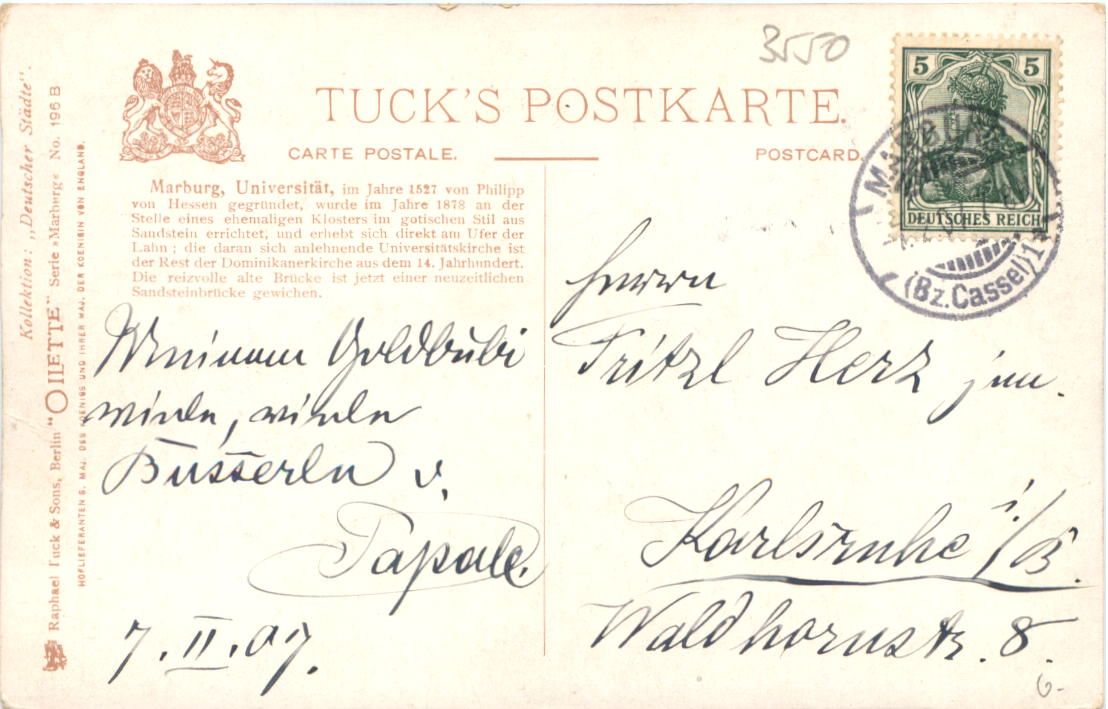 3550
TUCK'S POSTKARTE.
CARTE POSTALE.
POSTCARD
5 5
DEUTSCHES REICH
MARBURG
(Bz.Cassel) 1
Marburg, Universität, im Jahre 1527 von Philipp
von Hessen gegründet, wurde im Jahre 1878 an der
Stelle eines ehemaligen Klosters im gotischen Stil aus
Sandstein errichtet, und erhebt sich direkt am Ufer der
Lahn; die daran sich anlehnende Universitätskirche ist
der Rest der Dominikanerkirche aus dem 14. Jahrhundert.
Die reizvolle alte Brücke ist jetzt einer neuzeitlichen
Sandsteinbrücke gewichen.
Meinem Goldbubi
viele, viele
Busserln v.
Papale.
7.II.07.
Herrn
Fritzl Herz jun.
Karlsruhe i/B.
Waldhornstr. 8
6-
Kollektion: „Deutscher Städte".
Raphael Tuck & Sons, Berlin "OILETTE" Serie »Marburg« No. 196 B
HOFLIEFERANTEN S. MAJ. DES KOENIGS UND IHRER MAJ. DER KOENIGIN VON ENGLAND.